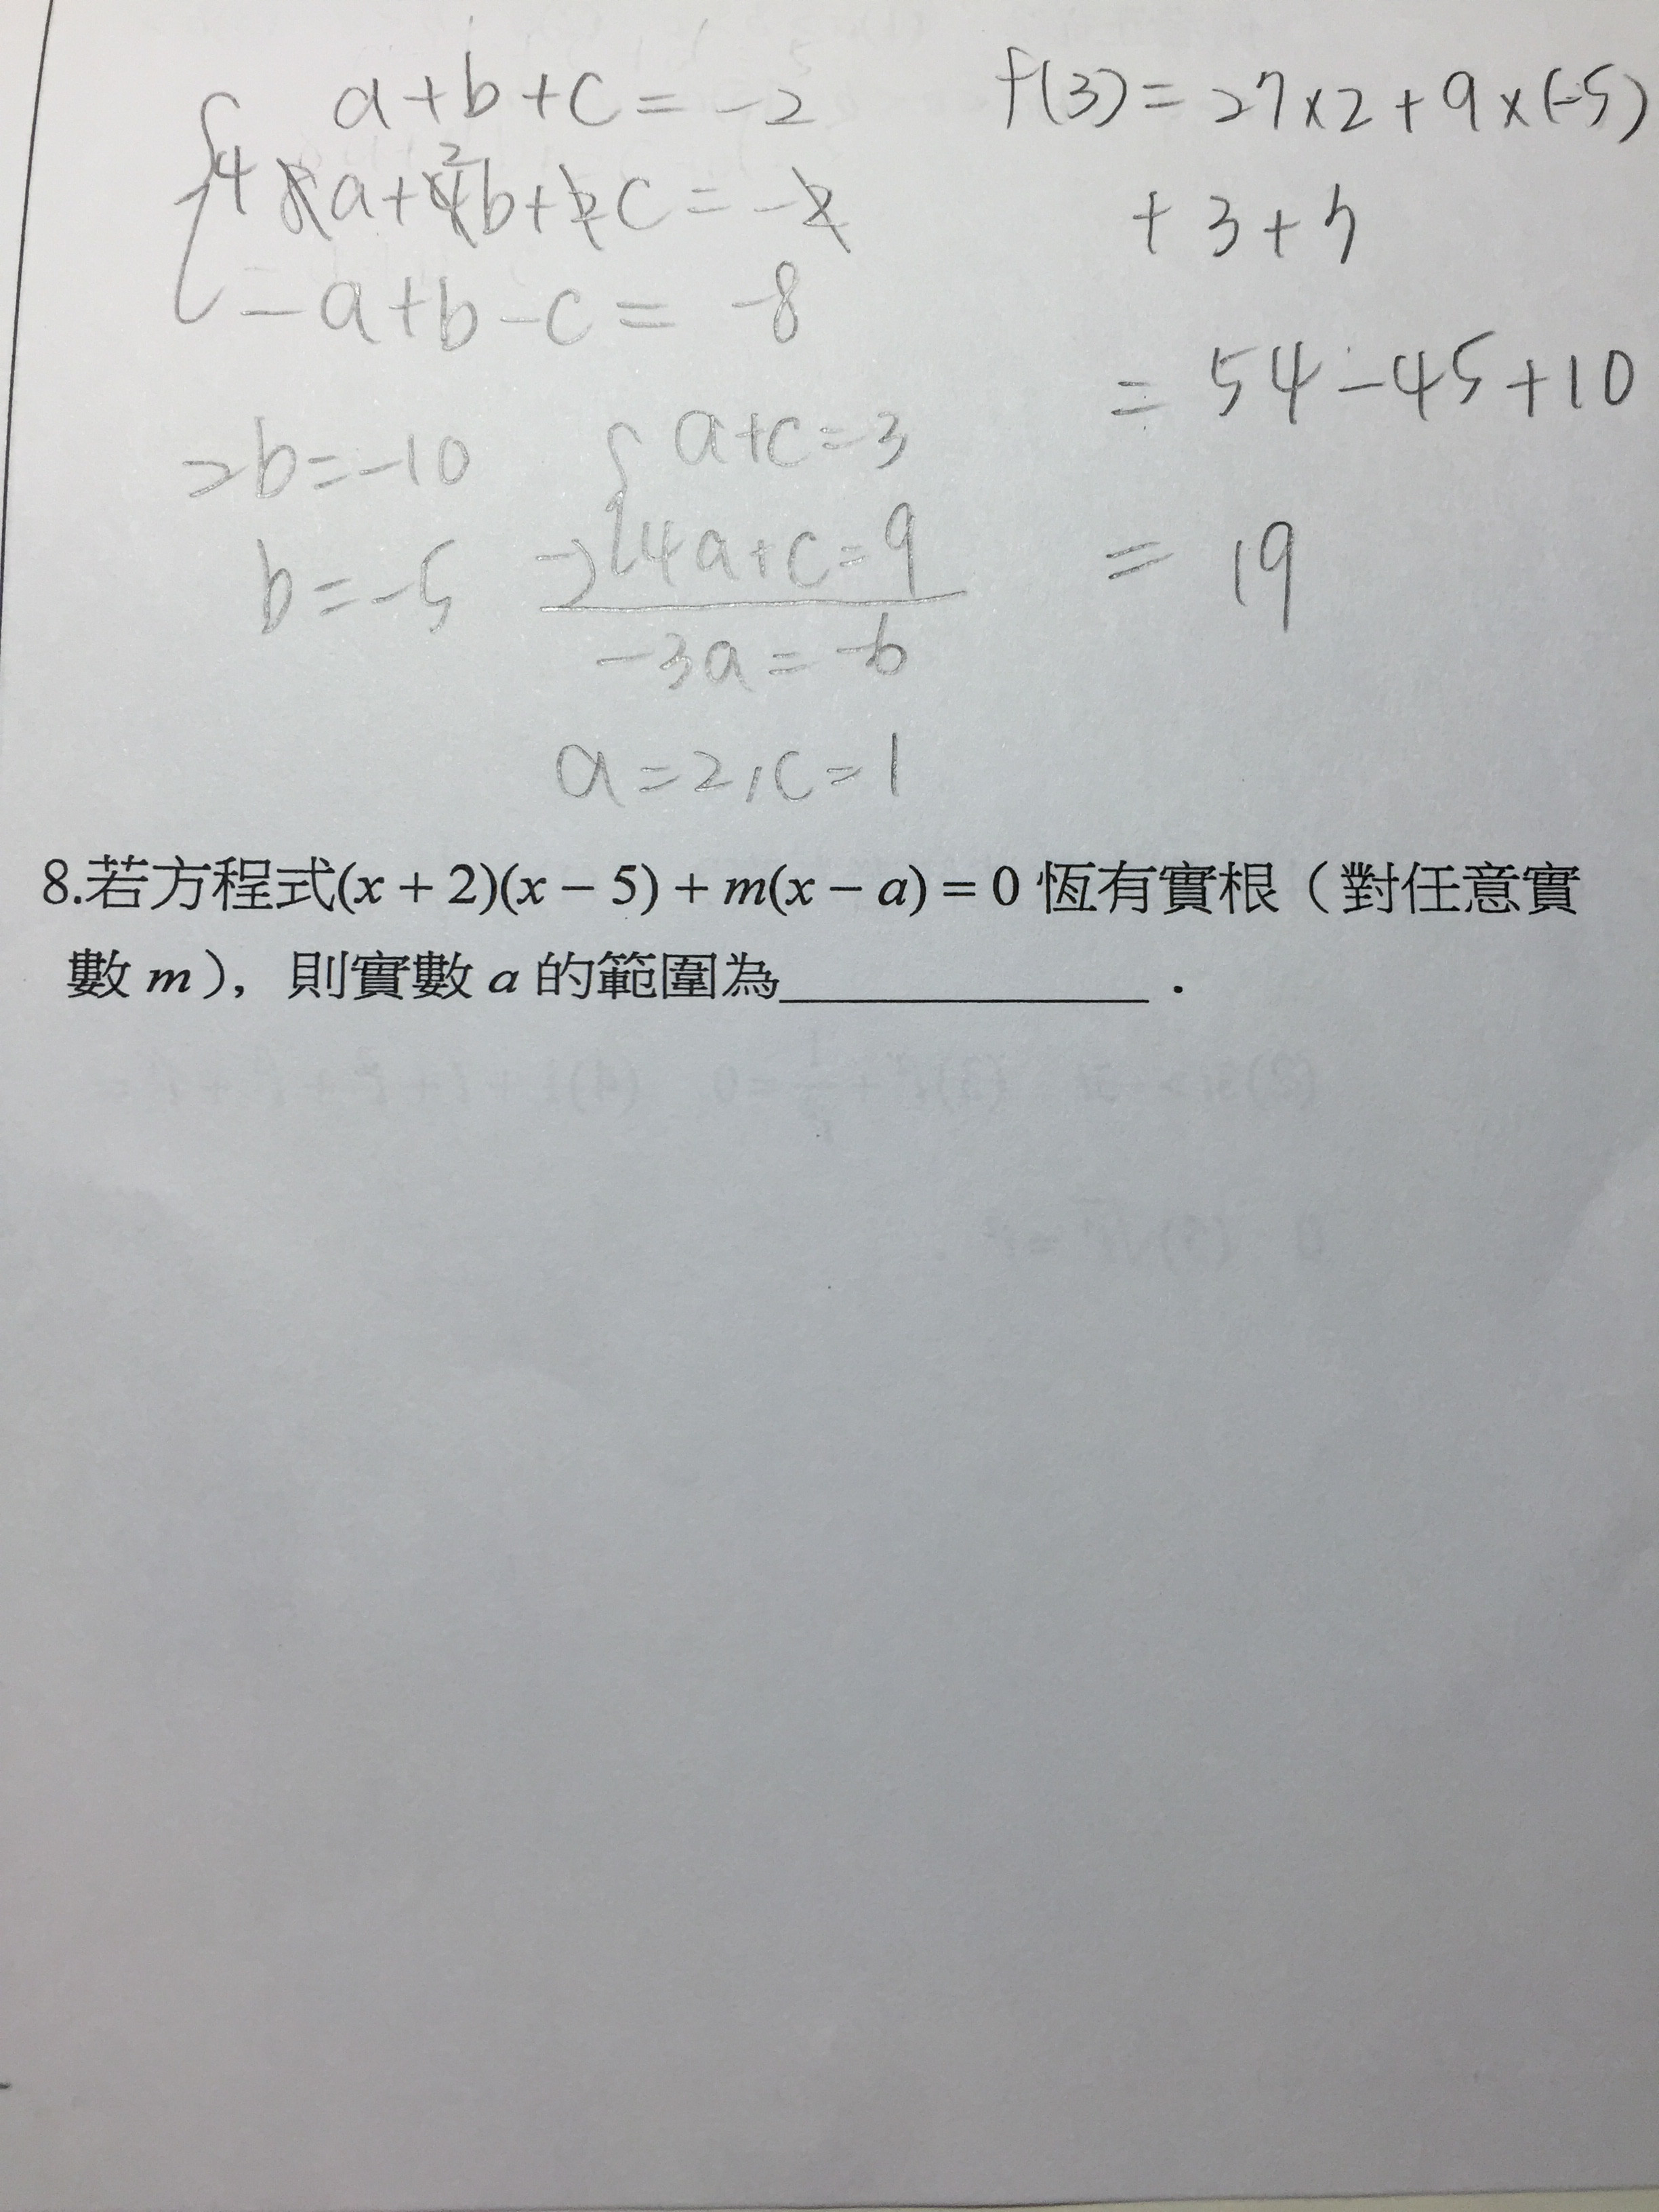 a+b+c=-2
4a+2b+c=-
-a+b-c=-8
2b=-10
b=-5
a+c=3
-) 4a+c=9
-3a=-6
a=2,c=1
f(3)=27×2+9×(-5)
+3+7
=54-45+10
=19
8.若方程式(x + 2)(x − 5) + m(x − a) = 0 恆有實根（對任意實
數 m），則實數 a 的範圍為____________．